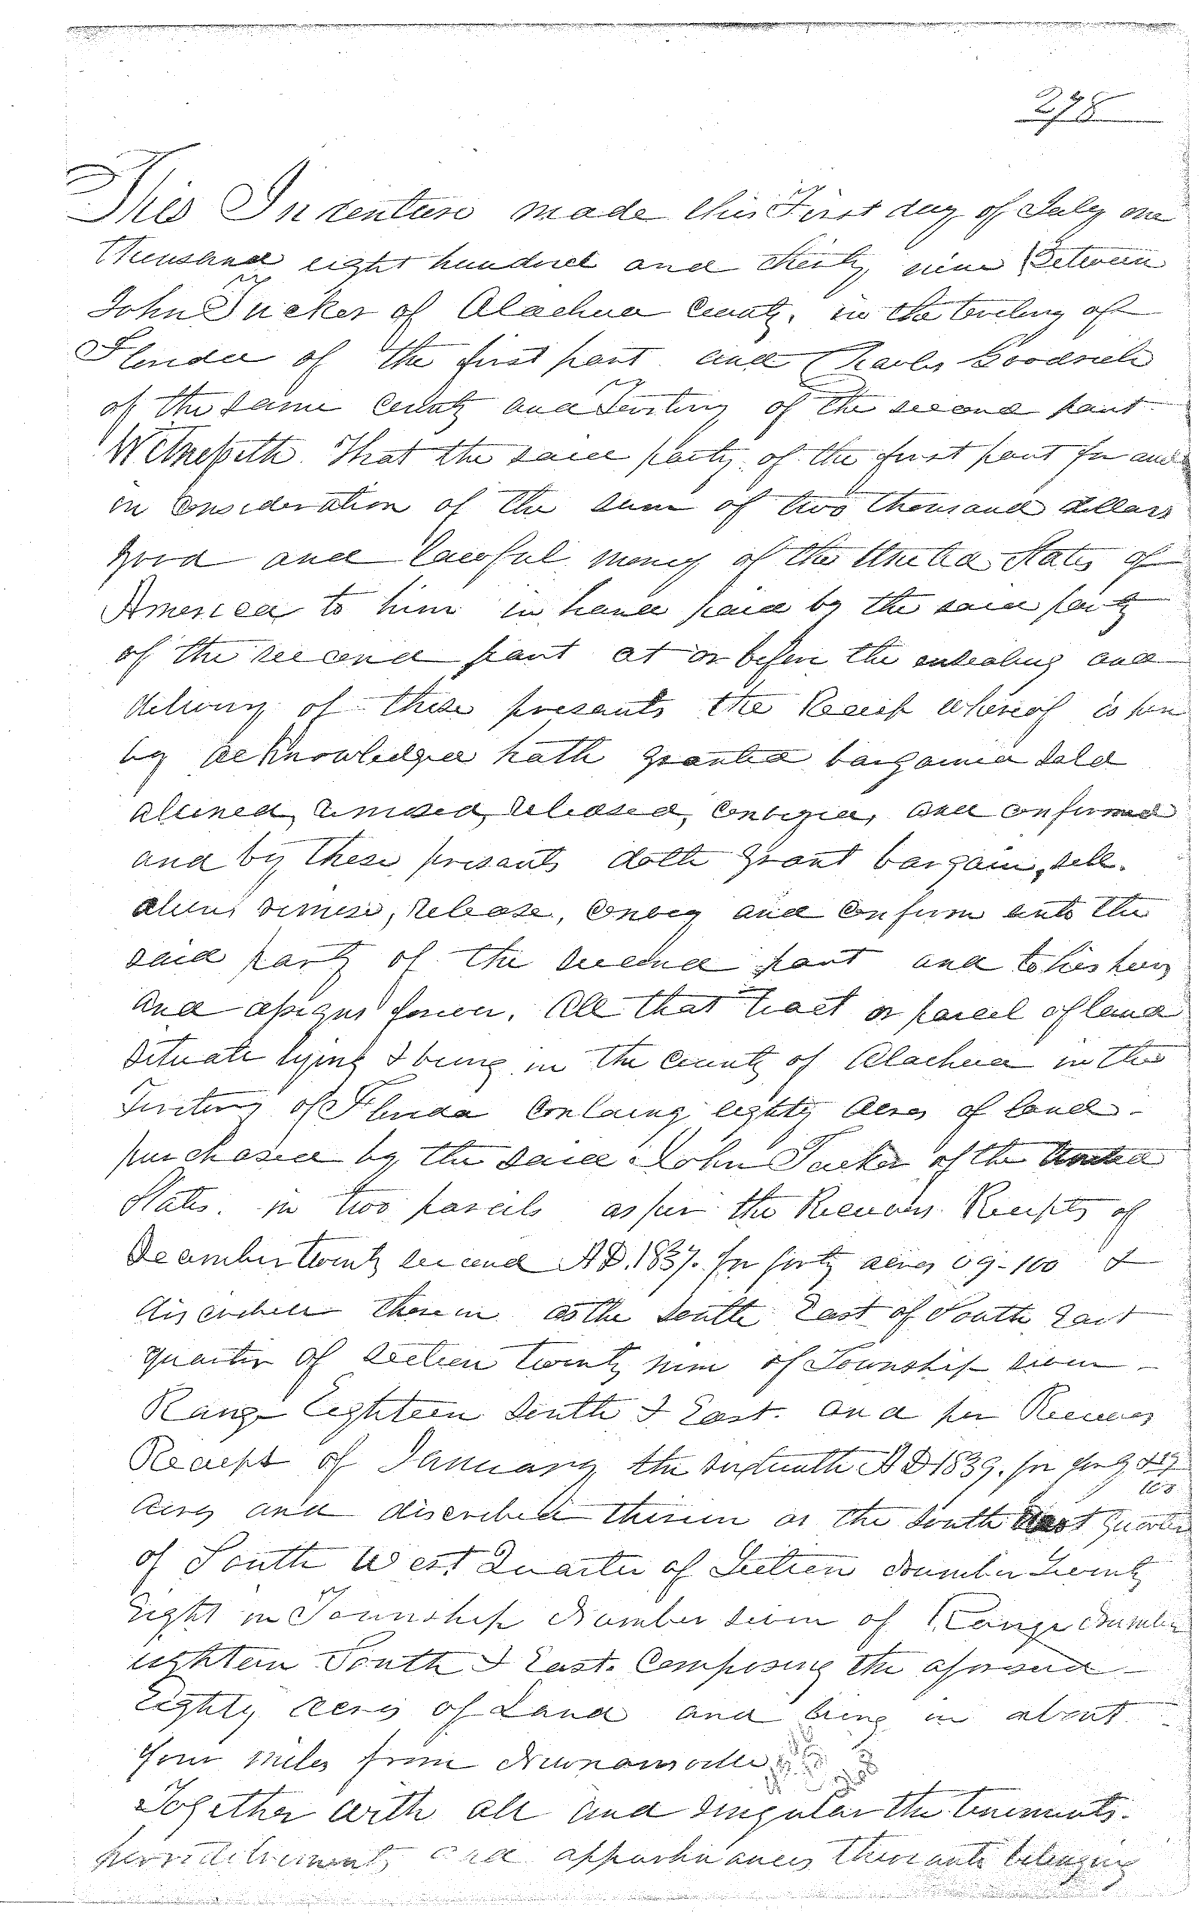 278
This Indenture made this First day of July one
thousand eight hundred and thirty nine Between
John Tucker of Alachua County, in the Territory of
Florida of the first part and Charles Goodrich
of the same County and Territory of the second part
Witnesseth. That the said party of the first part for and
in Consideration of the sum of two thousand dollars
good and lawful money of the United States of
America to him in hand paid by the said party
of the second part at or before the ensealing and
delivery of these presents the Receipt whereof is here
by acknowledged hath granted bargained Sold
aliened, remised, released, Conveyed, and confirmed
and by these presents doth grant bargain, sell.
alien, remise, release, Convey and Confirm unto the
said party of the second part and to his heirs
and assigns forever. All that tract or parcel of land
situate lying & being in the County of Alachua in the
Territory of Florida Containg eighty Acres of land -
purchased by the said John Tucker of the United
States. in two parcels as per the Receivers Receipts of
December twenty second A.D. 1837. for forty acres 09-100 &
discribed therein as the South East of South East
quarter of Section twenty nine of Township seven -
Range Eighteen South & East. and per Receivers
Receipt of January the sixteenth A D 1839. for forty 09/100
Acres and discribed therein as the South West Quarter
of South West Quarter of Section Number Twenty
Eight in Township Number seven of Range Number
eighteen South & East. Composing the aforesaid -
Eighty Acres of Land and being in about
four miles from Newnansville
Together with all and singular the tenements.
herreditements and appurtinances thereunto belonging